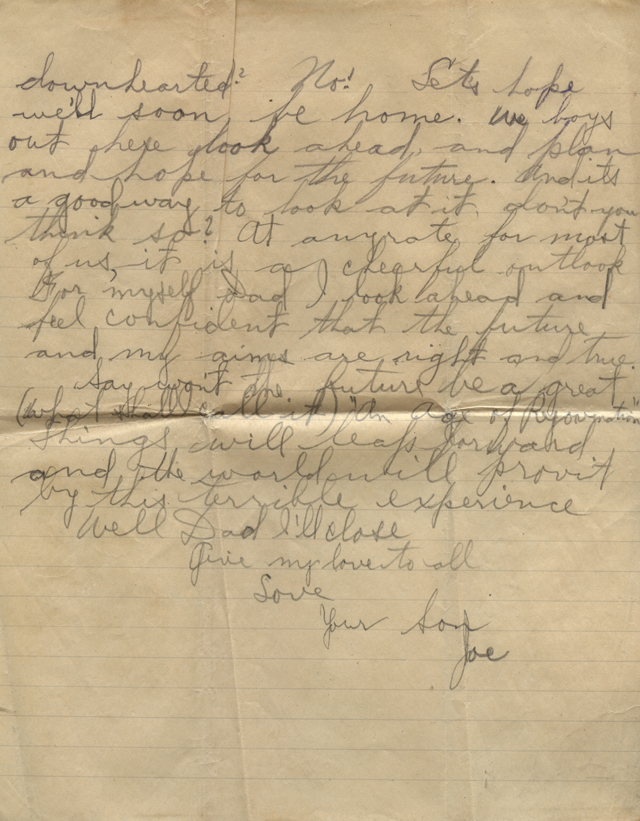 downhearted? No! Lets hope
we'll soon be home. We boys
out here look ahead, and plan
and hope for the future. And its
a good way to look at it don't you
think so? At anyrate for most
of us, it is a cheerful outlook
For myself Dad I look ahead and
feel confident that the future
and my aims are right and true.
Say won't the future be a great
(what shall I call it) "An age of Reformation"
Things will leap forward
and the world will provit
by this terrible experience
Well Dad I'll close
Give my love to all
Love
Your Son
Joe